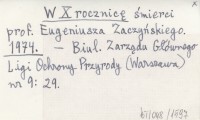 W X rocznicę śmierci
prof. Eugeniusza Zaczyńskiego.
1974. – Biul. Zarządu Głównego
Ligi Ochrony Przyrody (Warszawa)
nr 9: 29.